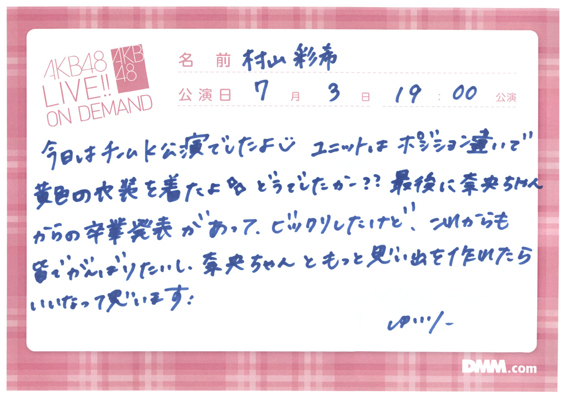 AKB48
LIVE!!
ON DEMAND
AKB
48
名前 村山 彩希
公演日 7月 3日 19:00 公演
今日はチームK公演でしたよ ユニットは ポジション違いで
黄色の衣装を着たよ どうでしたかー?? 最後に奈央ちゃん
からの卒業発表があって、ビックリしたけど、これからも
皆でがんばりたいし、奈央ちゃんともっと思い出を作れたら
いいなって思います!
ゆいりー
DMM.com